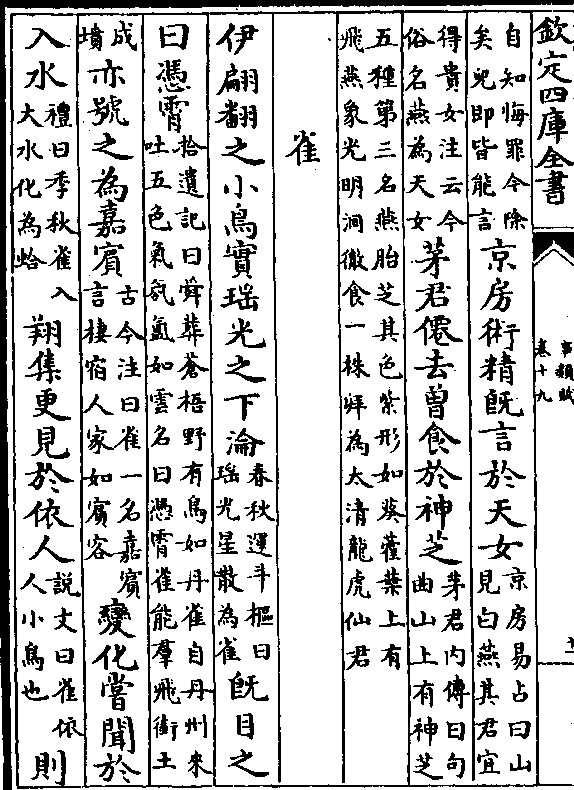 欽定四庫全書
事類賦
卷十九
自知悔罪令除
矣兇即皆能言
京房術精既言於天女
京房易占曰山
見白燕其君宜
得貴女注云今
俗名燕為天女
茅君僊去曾食於神芝
茅君內傳曰句
曲山上有神芝
五種第三名燕胎芝其色紫形如葵藿葉上有
飛燕象光明洞徹食一株拜為太清龍虎仙君
雀
伊翩翻之小鳥實瑤光之下淪
春秋運斗樞曰
瑤光星散為雀
既目之
曰憑霄
拾遺記曰舜葬蒼梧野有鳥如丹雀自丹州來
吐五色氣氛氲如雲名曰憑霄雀能羣飛銜土
成
墳
亦號之為嘉賓
古今注曰雀一名嘉賓
言棲宿人家如賓客
變化嘗聞於
入水
禮曰季秋雀入
大水化為蛤
翔集更見於依人
說文曰雀依
人小鳥也
則